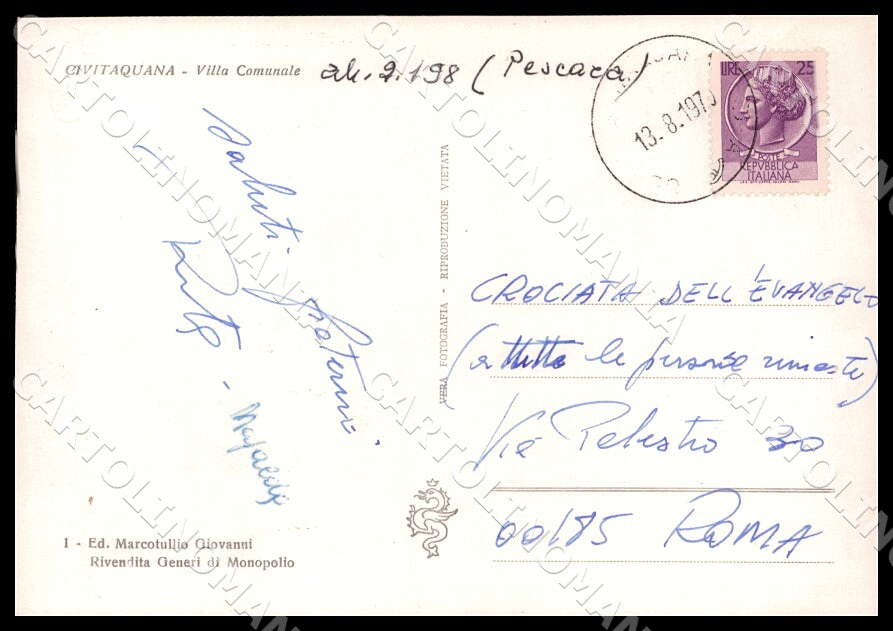 CIVITAQUANA - Villa Comunale
ab. 2.198 (Pescara)
LIRE 25
POSTE
REPVBBLICA
ITALIANA
13.8.197
Saluti fraterni.
VERA FOTOGRAFIA - RIPRODUZIONE VIETATA
CROCIATA DELL'EVANGELO
(a tutte le persone rimaste)
Via Palestro 30
00185 ROMA
1 - Ed. Marcotullio Giovanni
Rivendita Generi di Monopolio
CARTOLINOMANIA